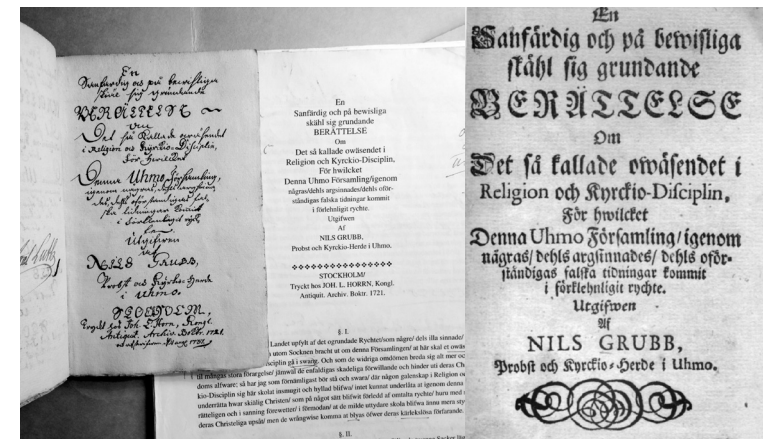 En
Sanfärdig och på bewisliga
skähl sig grundande
BERÄTTELSE
Om
Det så kallade owäsendet i
Religion och Kyrckio-Disciplin,
För hwilcket
Denna Uhmo Församling,
igenom några, dehls argsinnades
Utgifwen
af
NILS GRUBB,
Probst och Kyrckio-Herde
i Uhmo.
STOCKHOLM,
Tryckt hos Joh. L. Horrn, Kongl.
Antiquit. Archiv. Boktr. 1721.
En
Sanfärdig och på bewisliga
skähl sig grundande
BERÄTTELSE
Om
Det så kallade owäsendet i
Religion och Kyrckio-Disciplin,
För hwilcket
Denna Uhmo Församling/igenom
någras/dehls argsinnades/dehls oför-
ståndigas falska tidningar kommit
i förlehnligit rychte.
Utgifwen
Af
NILS GRUBB,
Probst och Kyrckio-Herde i Uhmo.
STOCKHOLM/
Tryckt hos JOH. L. HORRN, Kongl.
Antiquit. Archiv. Boktr. 1721.
§. I.
Landet upfylt af det ogrundade Rychtet/som några/ dels illa sinnade/
utom Socknen bracht ut om denna Församlingen/ at här skal et owäs
sciplin gå i swang. Och som de widriga omdömen breda sig alt mer oc
til mångas stora förargelse/ jämwäl de enfaldigas skadeliga förwillande och hinder uti deras Ch
doms alfware: så har jag som förnämligast bör stå och swara/ där någon galenskap i Religion oc
kio-Disciplin sig här skolat insmogit och hyllad blifwa/ intet kunnat underlåta at igenom denna
underrätta hwar skiälig Christen/ som på något sätt blifwit förledd af omtalta rychte/ huru med
rätteligen och i sanning förewetter/ i förmodan/ at de mildre uttydare skola blifwa ännu mera sty
deras Christeliga upsåt/ men de wrångwise komma at blyas öfwer deras kärleksløsa förfarande.
§. II.
En
Sanfärdig och på bewisliga
skähl sig grundande
BERÄTTELSE
Om
Det så kallade owäsendet i
Religion och Kyrckio-Disciplin,
För hwilcket
Denna Uhmo Församling/ igenom
någras/ dehls argsinnades/ dehls oför-
ståndigas falska tidningar kommit
i förklehnligit rychte.
Utgifwen
Af
NILS GRUBB,
Probst och Kyrckio-Herde i Uhmo.